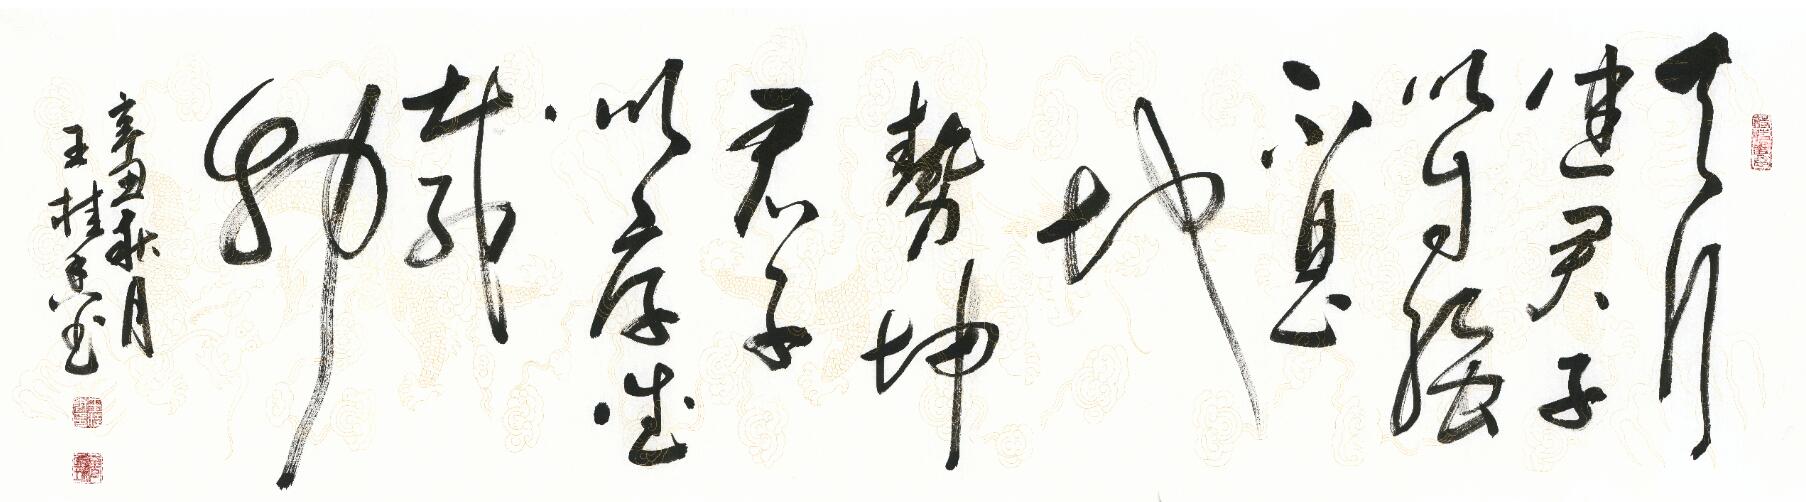 天行
健君子
以自強
不息
地
勢坤
君子
以厚德
載
物
辛丑秋月
王桂